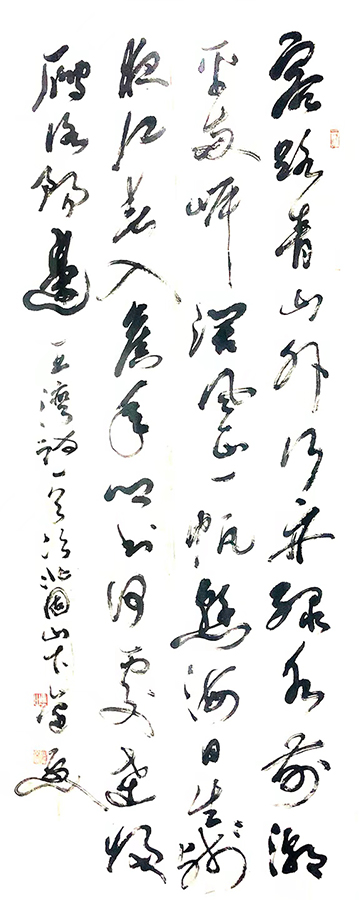 客路青山外行舟綠水前潮
平兩岸濶風正一帆懸海日生殘
夜江春入舊年鄉書何處達歸
雁洛陽邊
王灣詩一首次北固山下